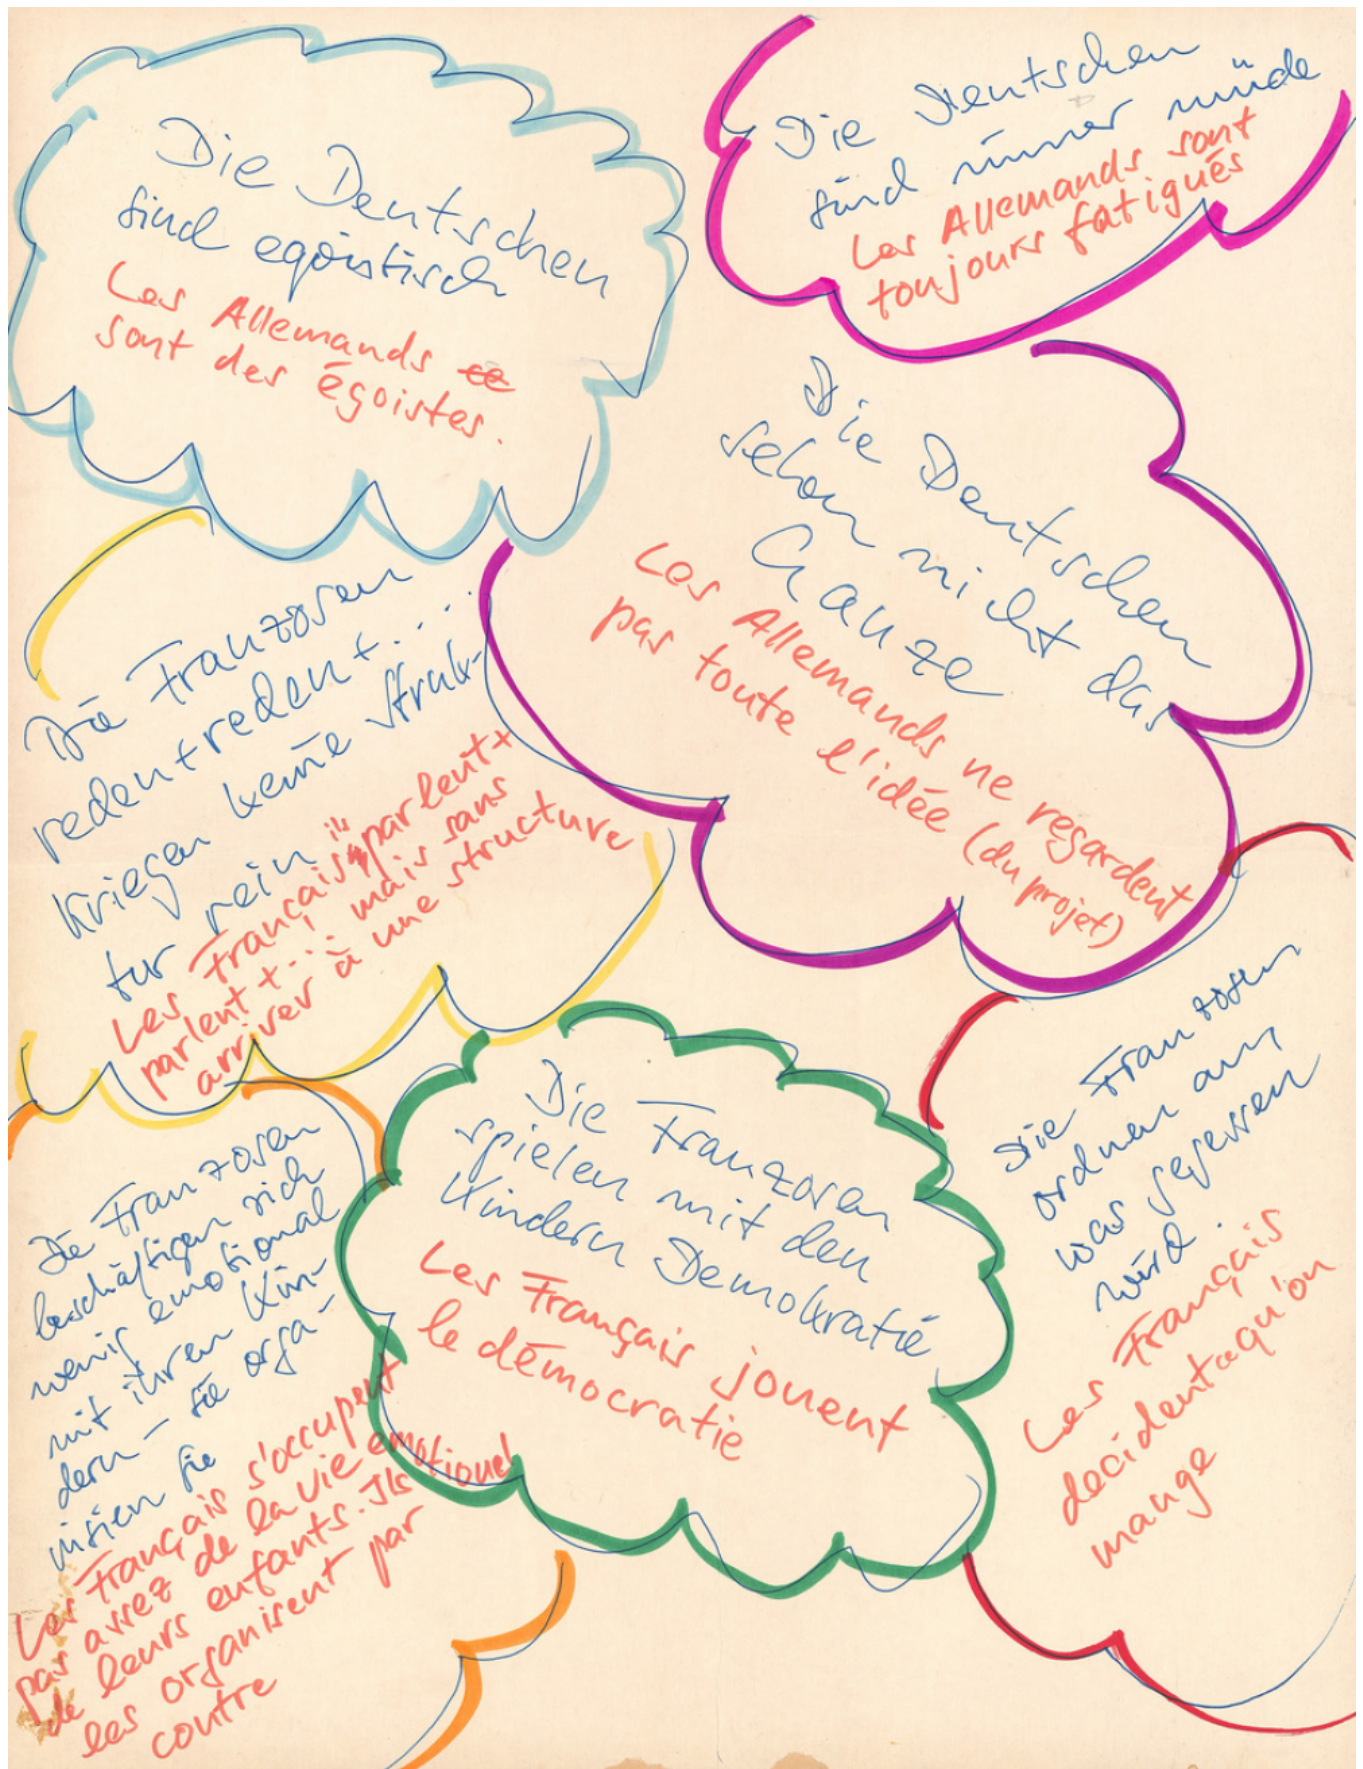 Die Deutschen
sind egoistisch
Les Allemands
sont des égoistes.
Die Deutschen
sind immer müde
Les Allemands sont
toujours fatigués
Die Deutschen
sehen nicht das
Ganze
Les Allemands ne regardent
pas toute l'idée (du projet)
Die Franzosen
reden + reden + ....
kriegen keine Struk-
tur rein
Les Français, ils parlent +
parlent + ... mais sans
arriver à une structure
Die Franzosen
spielen mit den
Kindern Demokratie
Les Français jouent
le démocratie
Die Franzosen
ordnen an,
was gegessen
wird.
Les Français
decident qu'on
mange
Die Franzosen
beschäftigen sich
wenig emotional
mit ihren Kin-
dern – sie orga-
nisieren sie
Les Français s'occupent
pas assez de la vie emotionel
de leurs enfants. Ils
les organisent par
contre